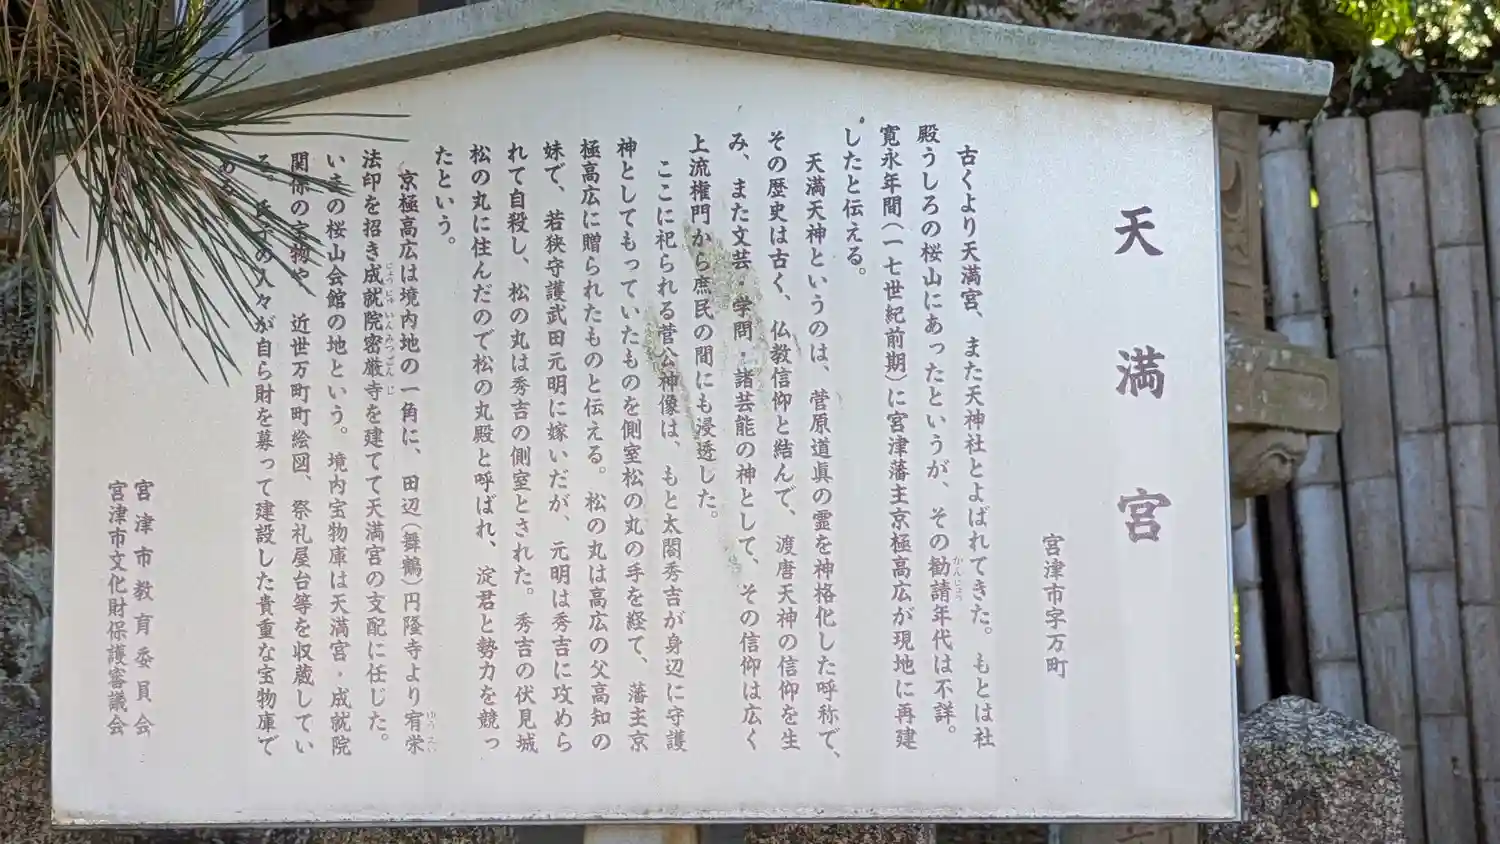 天満宮
宮津市字万町
古くより天満宮、また天神社とよばれてきた。もとは社
殿うしろの桜山にあったというが、その勧請年代は不詳。
かんじょう
寛永年間(一七世紀前期)に宮津藩主京極高広が現地に再建
したと伝える。
天満天神というのは、菅原道眞の霊を神格化した呼称で、
その歴史は古く、仏教信仰と結んで、渡唐天神の信仰を生
み、また文芸・学問・諸芸能の神として、その信仰は広く
上流権門から庶民の間にも浸透した。
ここに祀られる菅公神像は、もと太閤秀吉が身辺に守護
神としてもっていたものを側室松の丸の手を経て、藩主京
極高広に贈られたものと伝える。松の丸は高広の父高知の
妹で、若狭守護武田元明に嫁いだが、元明は秀吉に攻めら
れて自殺し、松の丸は秀吉の側室とされた。秀吉の伏見城
松の丸に住んだので松の丸殿と呼ばれ、淀君と勢力を競っ
たという。
京極高広は境内地の一角に、田辺(舞鶴)円隆寺より宥栄
ゆうえい
法印を招き成就院密厳寺を建てて天満宮の支配に任じた。
じょうじゅいんみつごんじ
いまの桜山会館の地という。境内宝物庫は天満宮・成就院
関係の宝物や、近世万町町絵図、祭礼屋台等を収蔵してい
る。氏子の人々が自ら財を募って建設した貴重な宝物庫で
ある。
宮津市教育委員会
宮津市文化財保護審議会